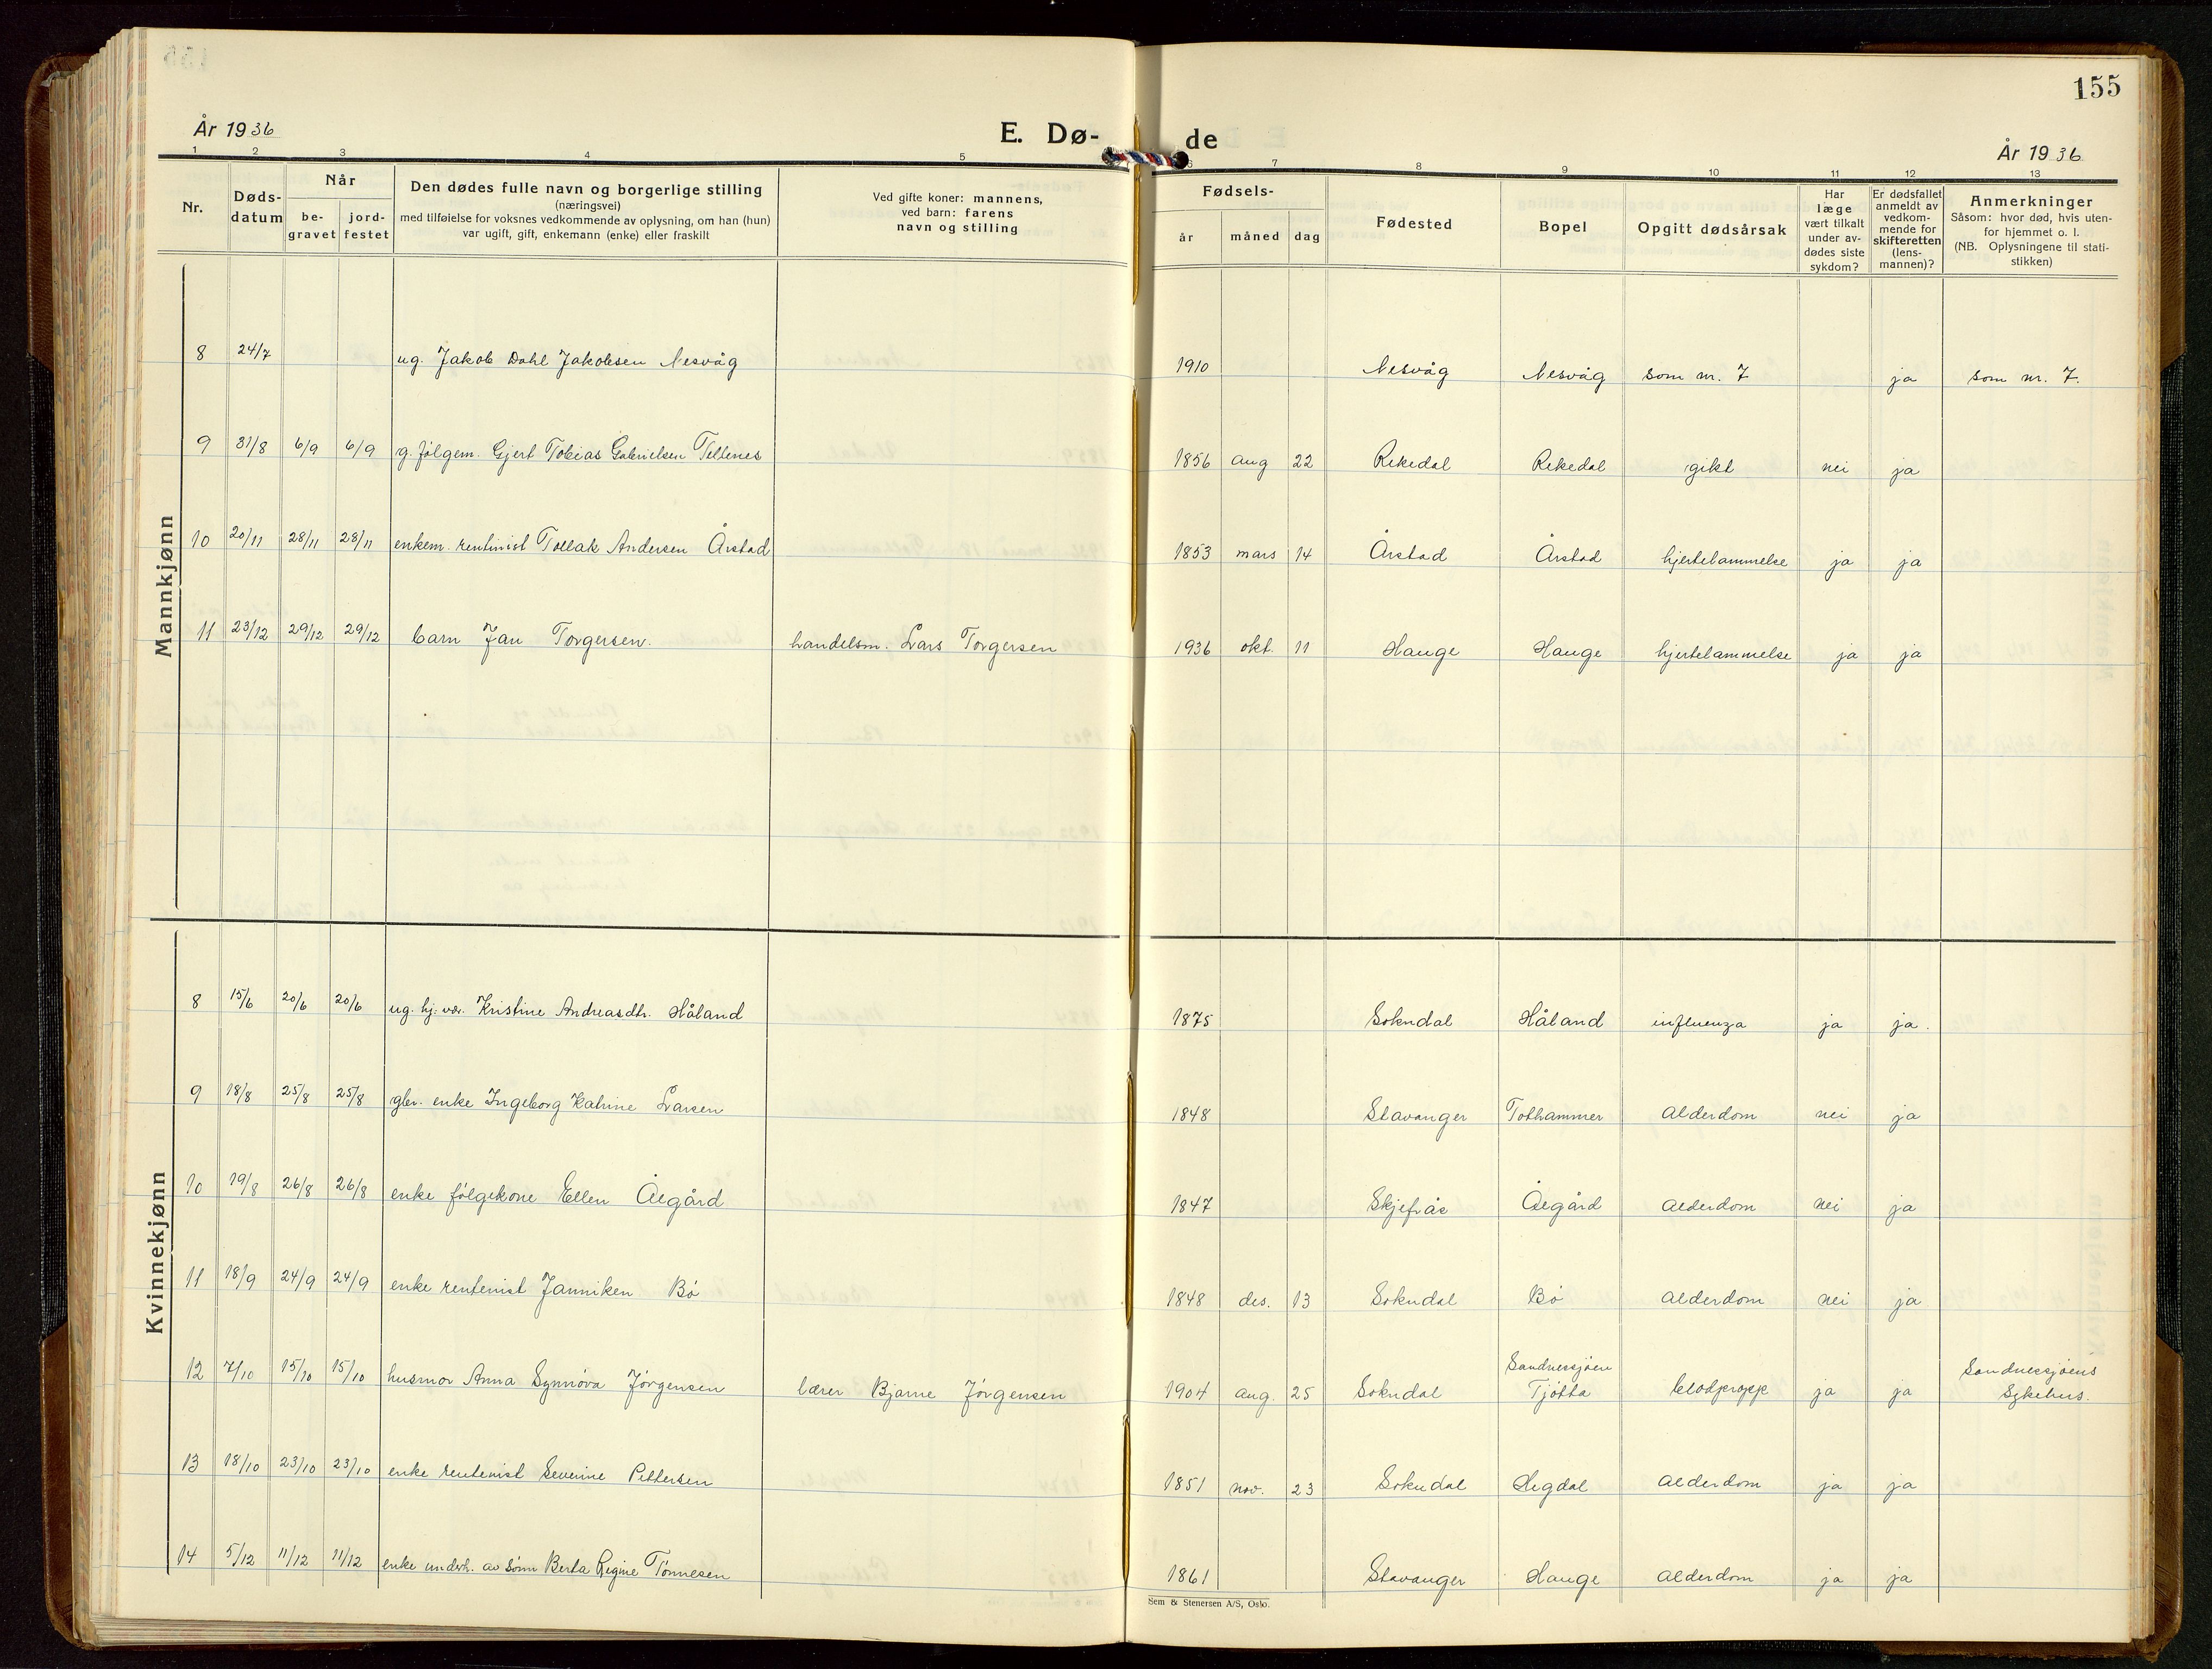 155
År 1936
E. Dø-
de
År 1936
1 2 3 4 5 6 7 8 9 10 11 12 13
Nr.
Døds-
datum
Når
be-
gravet
jord-
festet
Den dødes fulle navn og borgerlige stilling
(næringsvei)
med tilføielse for voksnes vedkommende av oplysning, om han (hun)
var ugift, gift, enkemann (enke) eller fraskilt
Ved gifte koner: mannens,
ved barn: farens
navn og stilling
Fødsels-
år måned dag
Fødested
Bopel
Opgitt dødsårsak
Har
læge
vært tilkalt
under av-
dødes siste
sykdom?
Er dødsfallet
anmeldt av
vedkom-
mende for
skifteretten
(lens-
mannen)?
Anmerkninger
Såsom: hvor død, hvis uten-
for hjemmet o. l.
(NB. Oplysningene til stati-
stikken)
Mannkjønn
8 24/7 ug. Jakob Dahl Jakobsen Nesvåg 1910 Nesvåg Nesvåg som nr. 7 ja som nr. 7.
9 31/8 6/9 6/9 g. følgem. Gjert Tobias Gabrielsen Tellenes 1856 aug 22 Rekedal Rekedal gikt nei ja
10 20/11 28/11 28/11 enkem. rentenist Tollak Andersen Årstad 1853 mars 14 Årstad Årstad hjertelammelse ja ja
11 23/12 29/12 29/12 barn Jan Torgersen. handelsm. Lars Torgersen 1936 okt. 11 Hauge Hauge hjertelammelse ja ja
Kvinnekjønn
8 15/6 20/6 20/6 ug. hj. vær. Kristine Andreasdtr. Håland 1875 Sokndal Håland influenza ja ja.
9 18/8 25/8 25/8 gbr. enke Ingeborg Katrine Larsen 1848 Stavanger Tothammer Alderdom nei ja
10 19/8 26/8 26/8 enke følgekone Ellen Ålgård 1847 Skjefrås Ålgård Alderdom nei ja
11 18/9 24/9 24/9 enke rentenist Janniken Bø 1848 des. 13 Sokndal Bø Alderdom nei ja
12 7/10 15/10 15/10 husmor Anna Synnøva Jørgensen lærer Bjarne Jørgensen 1904 aug. 25 Sokndal Sandnessjøen
Tjøtta blodpropp ja ja Sandnessjøens
Sykehus.
13 18/10 23/10 23/10 enke rentenist Severine Pettersen 1851 nov. 23 Sokndal Hegdal Alderdom ja ja
14 5/12 11/12 11/12 enke underh. av sønn Berta Regine Tønnesen 1861 Stavanger Hauge Alderdom ja ja
Sem & Stenersen A/S, Oslo.